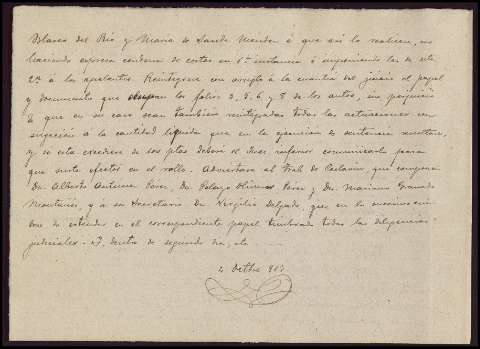 Blasco del Rio y Maria de Sande Mendez á que así lo realicen, no
haciendo expresa condena de costas en 1ª instancia é imponiendo las de esta
2ª á los apelantes. Reintegrese con arreglo á la cuantía del juicio el papel
y documento que ocupan los folios 2, 5, 6 y 8 de los autos, sin perjuicio
de que en su caso sean tambien reintegradas todas las actuaciones con
sujeción á la cantidad líquida que en la ejecución de sentencia resultare,
y si esta excediese de 500 ptas deberá el Juez inferior comunicarlo para
que surta efectos en el rollo. Adviertase al tral de que componen
Dn Alberto Antunez, Dn Pelayo Olivares y Dn Mariano Granado
y á su Secretario Dn Virgilio Delgado, que en lo sucesivo
de extender en el correspondiente papel timbrado todas las diligencias
judiciales. dentro de segundo dia, etc
4 Octbre